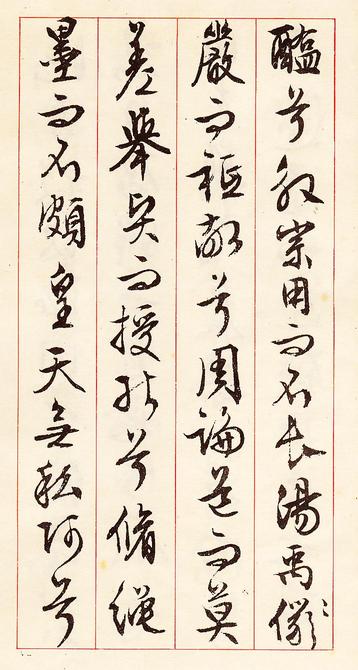 醢兮殷宗用而不長湯禹儼
嚴而祗敬兮周論道而莫
差舉賢而授能兮脩繩
墨而不頗皇天無私阿兮